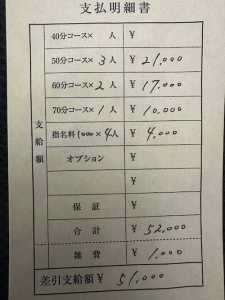 支払明細書
40分コース× 人 ¥
50分コース× 3人 ¥ 21,000
60分コース× 2人 ¥ 17,000
70分コース× 1人 ¥ 10,000
指名料 1,000 × 4人 ¥ 4,000
オプション ¥
¥
保証 ¥
合計 ¥ 52,000
雑費 ¥ 1,000
支給額
差引支給額 ¥ 51,000